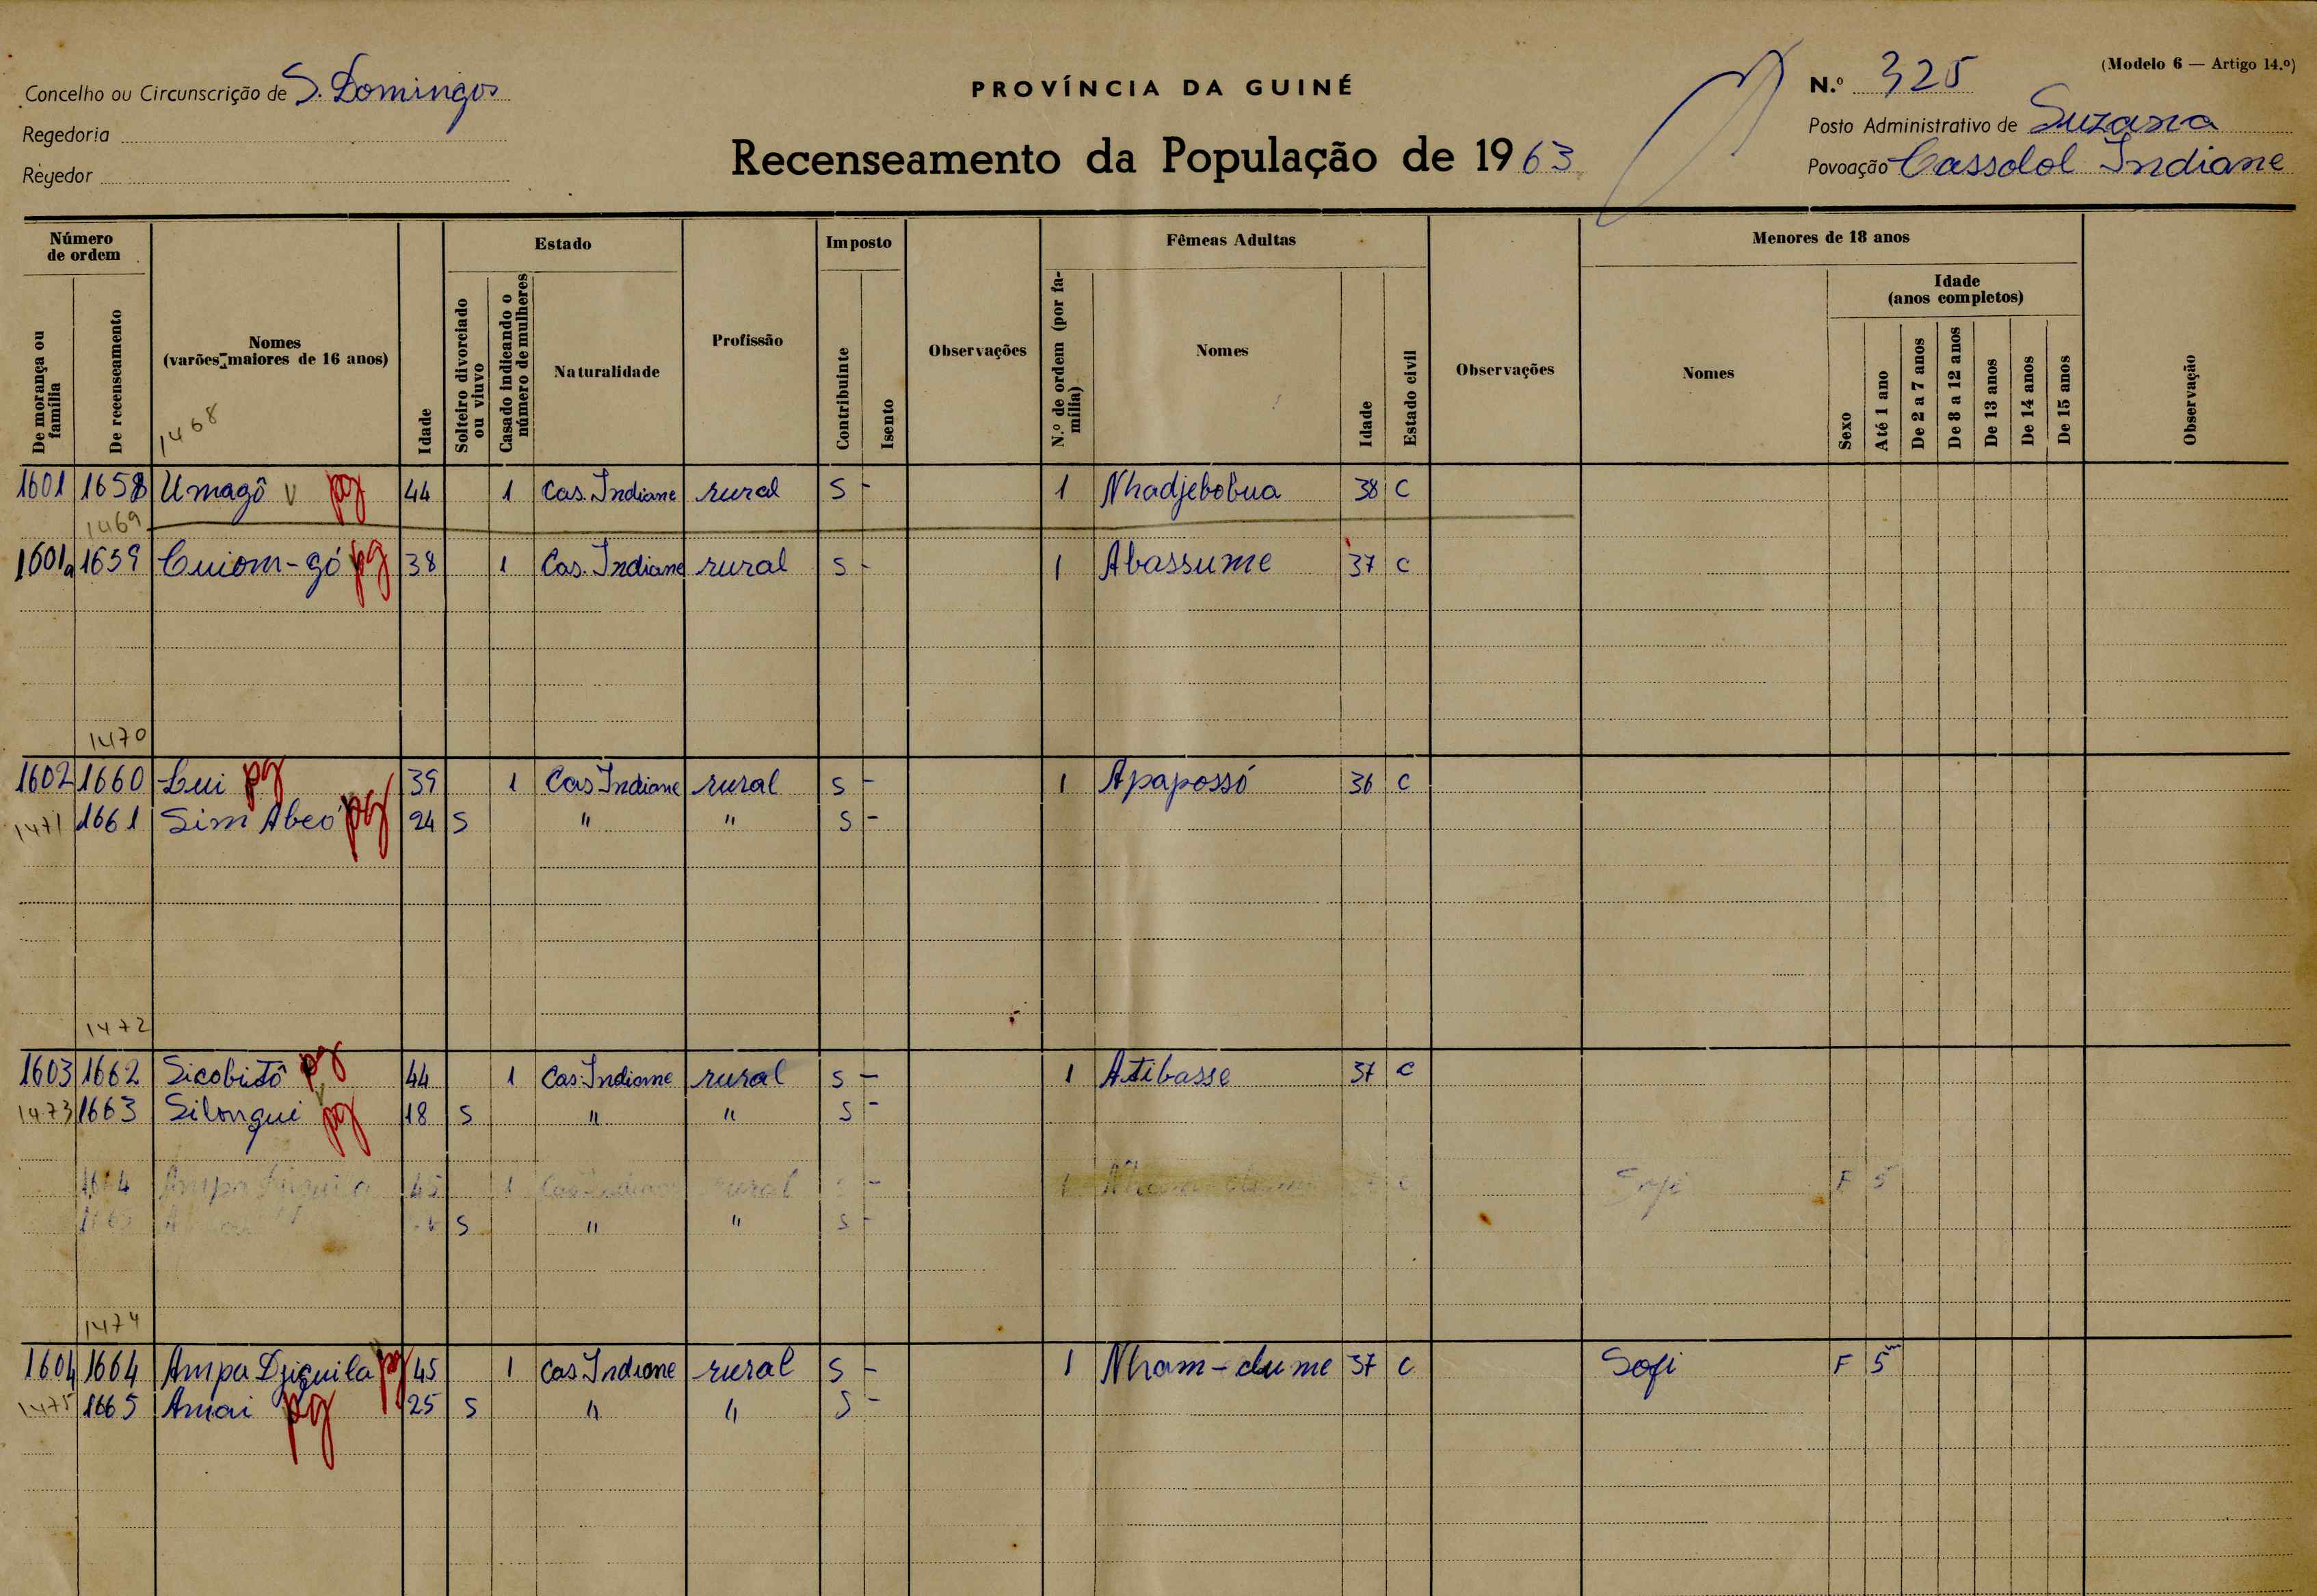 (Modelo 6 — Artigo 14.º)
Concelho ou Circunscrição de S. Domingos
PROVÍNCIA DA GUINÉ
N.º 325
Regedoria
Posto Administrativo de Suzana
Regedor
Recenseamento da População de 1963
Povoação Cassolol Indiane
Número de ordem
Estado
Imposto
Fêmeas Adultas
Menores de 18 anos
De morança ou família
De recenseamento
Nomes
(varões maiores de 16 anos)
Idade
Solteiro divorciado ou viuvo
Casado indicando o número de mulheres
Naturalidade
Profissão
Contribuinte
Isento
Observações
N.º de ordem (por família)
Nomes
Idade
Estado civil
Observações
Nomes
Sexo
Idade (anos completos)
Até 1 ano
De 2 a 7 anos
De 8 a 12 anos
De 13 anos
De 14 anos
De 15 anos
Observação
1468
1601 1658 Umagô v pg 44 1 Cas. Indiane rural S - 1 Nhadjebobua 38 C
1469
1601a 1659 Cuiom-gó pg 38 1 Cas. Indiane rural S - 1 Abassume 37 C
1470
1602 1660 Lui pg 39 1 Cas Indiane rural S - 1 Apapossó 36 C
1471 1661 Sim Abeo pg 24 S " " S -
1472
1603 1662 Sicobutô pg 44 1 Cas. Indiane rural S - 1 Atibasse 37 C
1473 1663 Silongui pg 18 S " " S -
1664 Ampa 45 1 rural - 1 Nham-dume C Sofi F 5
S " " S -
1474
1604 1664 Ampa Djiguila pg 45 1 Cas Indiane rural S - 1 Nham-dume 37 C Sofi F 5m
1475 1665 Amai pg 25 S " " S -